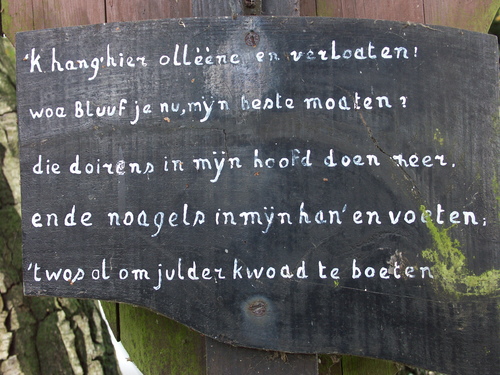 'k hang hier ollëënc en verloaten!
woa Bluuf je nu, mÿn beste moaten?
die doirens in mÿn hoofd doen zeer.
ende noagels in mÿn han' en voeten;
'twos ol om julder kwoad te boeten